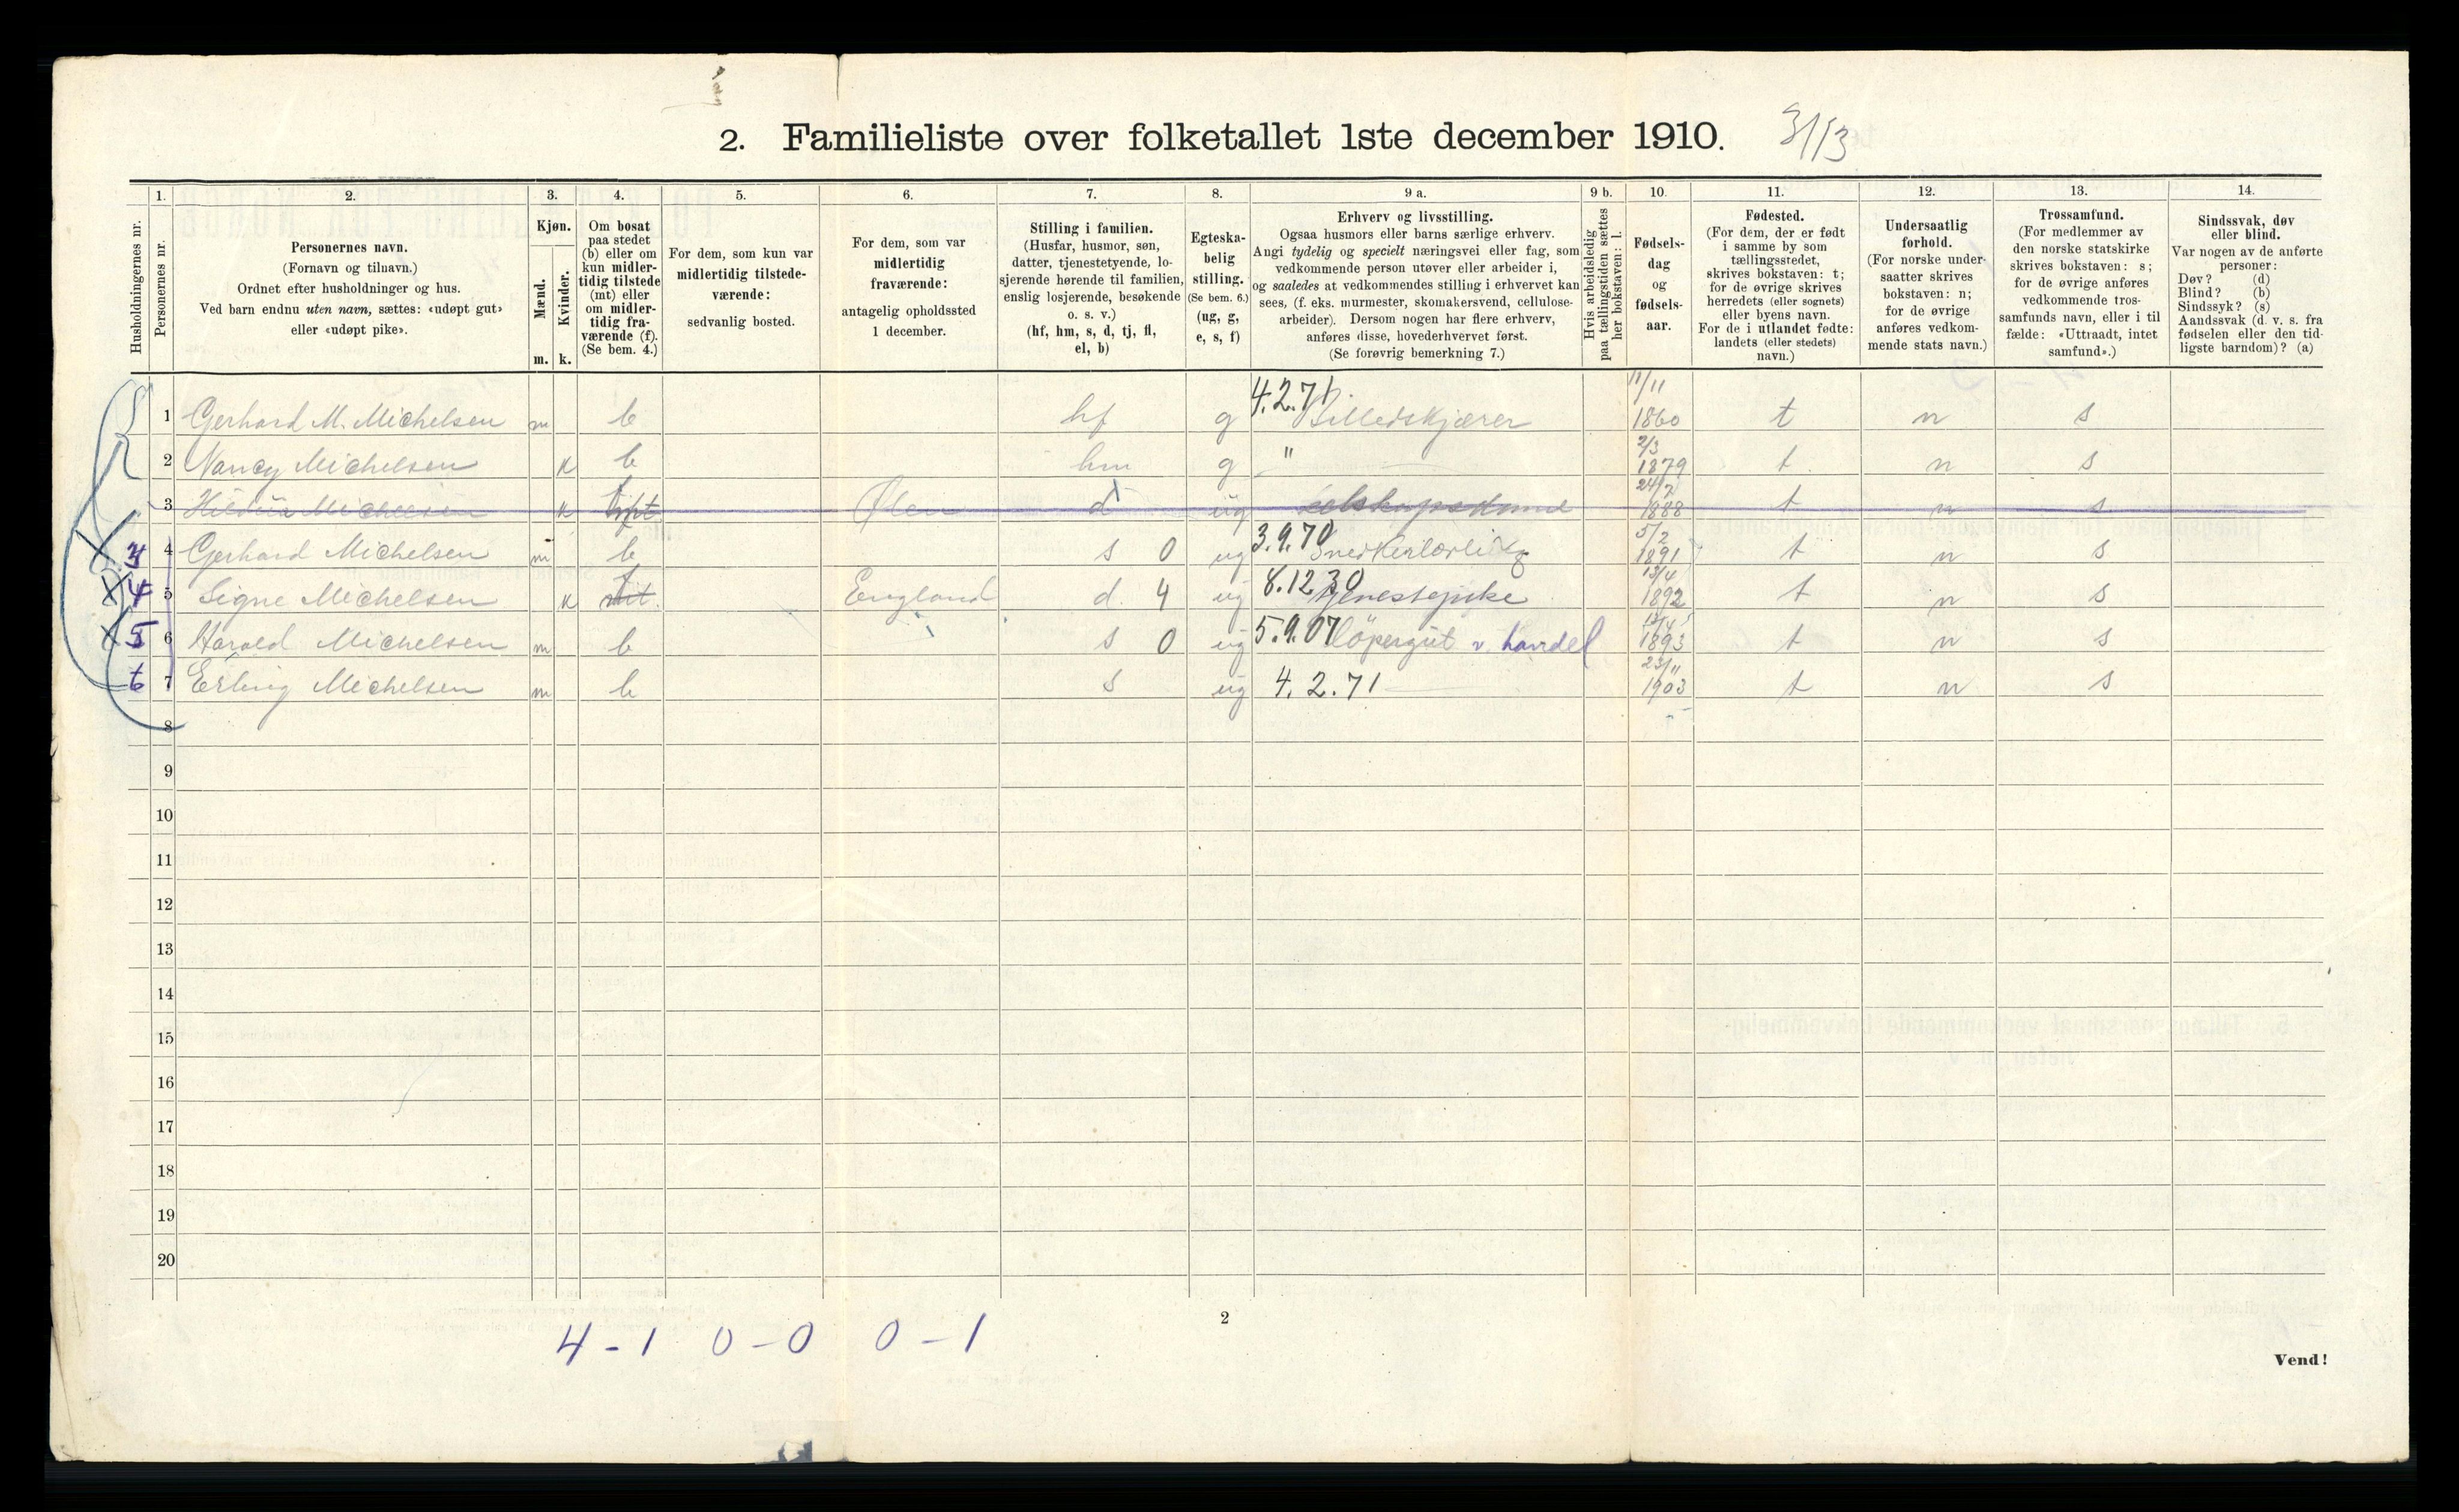 2. Familieliste over folketallet 1ste december 1910. 3/13
1. 2. 3. 4. 5. 6. 7. 8. 9 a. 9 b. 10. 11. 12. 13. 14.
Husholdningernes nr.
Personernes nr.
Personernes navn.
(Fornavn og tilnavn.)
Ordnet efter husholdninger og hus.
Ved barn endnu uten navn, sættes: «udøpt gut»
eller «udøpt pike».
Kjøn.
Mænd.
Kvinder.
m. k.
Om bosat
paa stedet
(b) eller om
kun midler-
tidig tilstede
(mt) eller
om midler-
tidig fra-
værende (f).
(Se bem. 4.)
For dem, som kun var
midlertidig tilstede-
værende:
sedvanlig bosted.
For dem, som var
midlertidig
fraværende:
antagelig opholdssted
1 december.
Stilling i familien.
(Husfar, husmor, søn,
datter, tjenestetyende, lo-
sjerende hørende til familien,
enslig losjerende, besøkende
o. s. v.)
(hf, hm, s, d, tj, fl,
el, b)
Egteska-
belig
stilling.
(Se bem. 6.)
(ug, g,
e, s, f)
Erhverv og livsstilling.
Ogsaa husmors eller barns særlige erhverv.
Angi tydelig og specielt næringsvei eller fag, som
vedkommende person utøver eller arbeider i,
og saaledes at vedkommendes stilling i erhvervet kan
sees, (f. eks. murmester, skomakersvend, cellulose-
arbeider). Dersom nogen har flere erhverv,
anføres disse, hovederhvervet først.
(Se forøvrig bemerkning 7.)
Hvis arbeidsledig
paa tællingstiden sættes
her bokstaven: l.
Fødsels-
dag
og
fødsels-
aar.
Fødested.
(For dem, der er født
i samme by som
tællingsstedet,
skrives bokstaven: t;
for de øvrige skrives
herredets (eller sognets)
eller byens navn.
For de i utlandet fødte:
landets (eller stedets)
navn.)
Undersaatlig
forhold.
(For norske under-
saatter skrives
bokstaven: n;
for de øvrige
anføres vedkom-
mende stats navn.)
Trossamfund.
(For medlemmer av
den norske statskirke
skrives bokstaven: s;
for de øvrige anføres
vedkommende tros-
samfunds navn, eller i til
fælde: «Uttraadt, intet
samfund».)
Sindssvak, døv
eller blind.
Var nogen av de anførte
personer:
Døv? (d)
Blind? (b)
Sindssyk? (s)
Aandssvak (d. v. s. fra
fødselen eller den tid-
ligste barndom)? (a)
1 Gerhard M. Michelsen m b hf g 4.2.71. Billedskjærer 11/11 1860 t n s
2 Nancy Michelsen k b hm g " 2/3 1879 t n s
3 Michelsen k Ølen d ug 24/7 1888 t n s
3 4 Gerhard Michelsen m b s 0 ug 3.9.70 Snedkerlærling 5/2 1891 t n s
4 5 Signe Michelsen k f England d. 4 ug 8.12.30 tjenestepike 13/4 1892 t n s
5 6 Harald Michelsen m b s 0 ug 5.9.07 løpergut v handel 1893 t n s
6 7 Erling Michelsen m b s ug 4.2.71 23/11 1903 t n s
8
9
10
11
12
13
14
15
16
17
18
19
20
2
4 - 1 0 - 0 0 - 1
Vend!